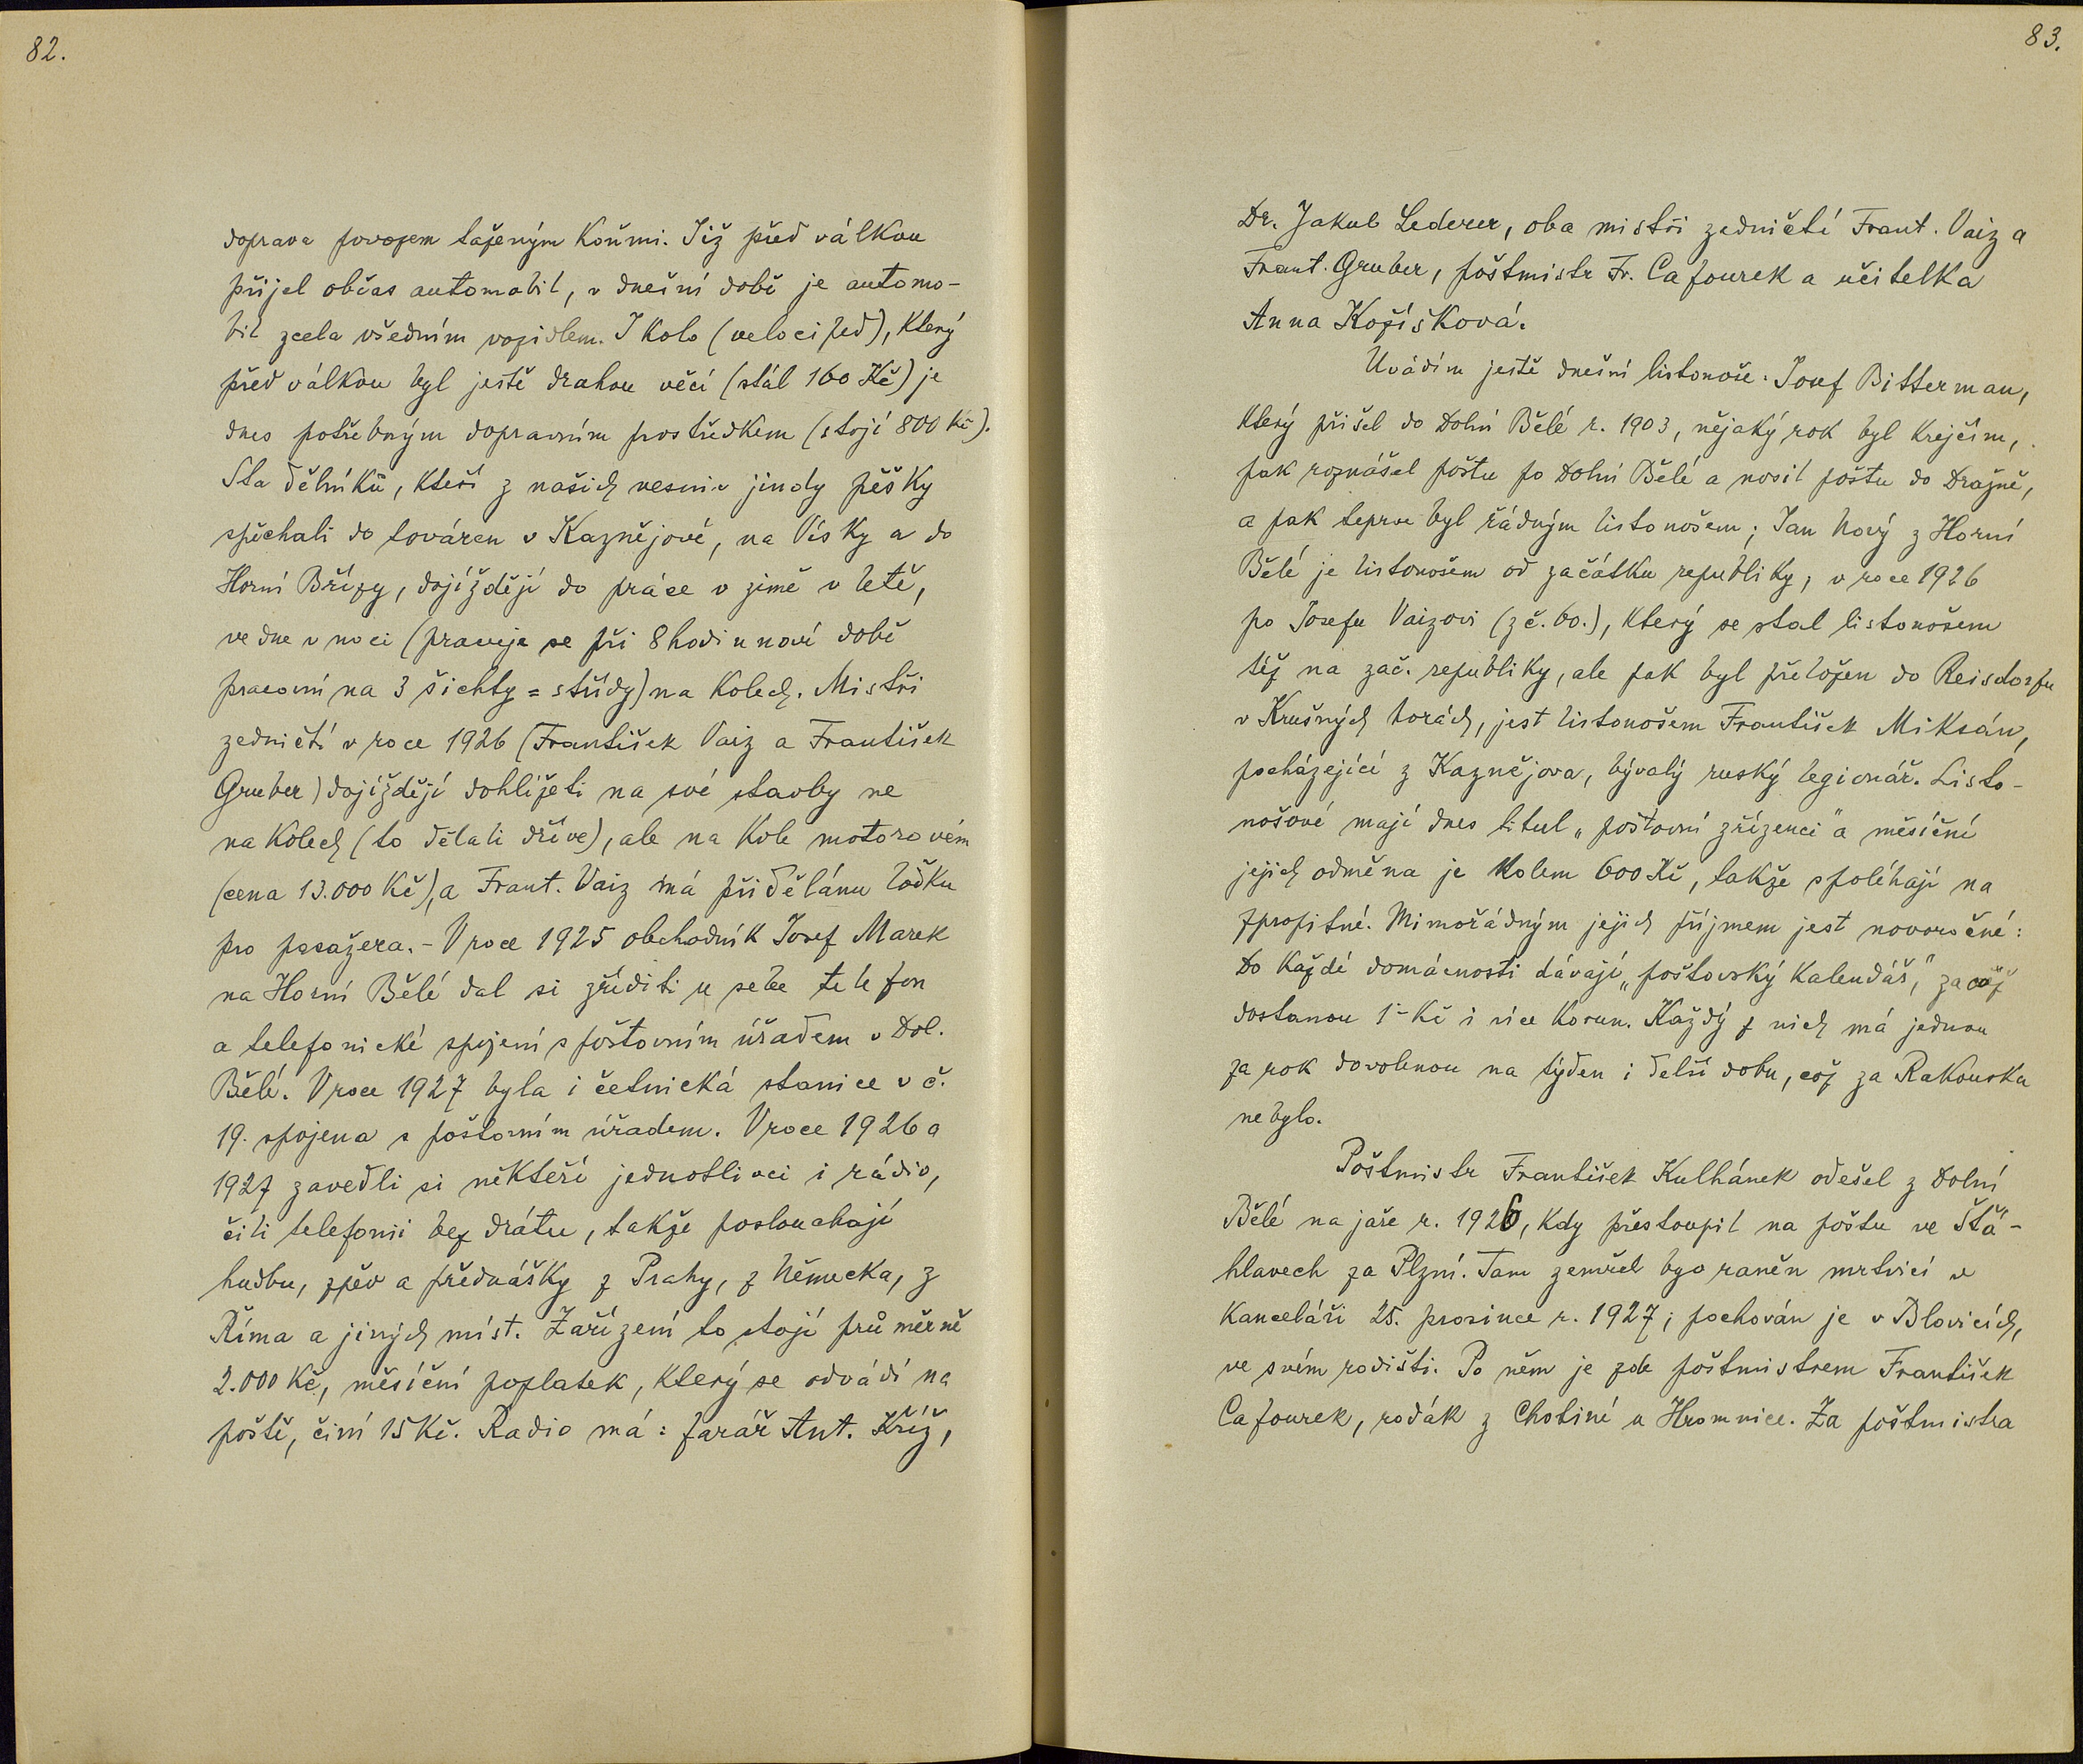 82.
doprava povozem taženým koňmi. Již před válkou
přijel občas automobil, v dnešní době je automo-
bil zcela všedním vozidlem. I kolo (velociped), který
před válkou byl ještě drahou věcí (stál 160 Kč) je
dnes potřebným dopravním prostředkem (stojí 800 Kč).
Sta dělníků, kteří z našich vesnic jindy pěšky
spěchali do továren v Kaznějově, na Vísky a do
Horní Břízy, dojíždějí do práce v zimě v létě,
ve dne v noci (pracuje se při 8hodinnové době
pracovní na 3 šichty = střídy) na kolech. Mistři
zedničtí v roce 1926 (František Vaiz a František
Gruber) dojíždějí dohlížeti na své stavby ne
na kolech (to dělali dříve), ale na kole motorovém
(cena 13.000 Kč), a Frant. Vaiz má přidělánu loďku
pro pasažera. - V roce 1925 obchodník Josef Marek
na Horní Bělé dal si zříditi u sebe telefon
a telefonické spojení s poštovním úřadem v Dol.
Bělé. V roce 1927 byla i četnická stanice v č.
19. spojena s poštovním úřadem. V roce 1926 a
1927 zavedli si někteří jednotlivci i rádio,
čili telefonii bez drátu, takže poslouchají
hudbu, zpěv a přednášky z Prahy, z Německa, z
Říma a jiných míst. Zařízení to stojí průměrně
2.000 Kč, měsíční poplatek, který se odvádí na
poště, činí 15 Kč. Radio má: farář Ant. Kříž,
83.
Dr. Jakub Lederer, oba mistři zedničtí Frant. Vaiz a
Frant. Gruber, poštmistr Fr. Cafourek a učitelka
Anna Kožíšková.
Uvádím ještě dnešní listonoše: Josef Bitterman,
který přišel do Dolní Bělé r. 1903, nějaký rok byl krejčím,
pak roznášel poštu po Dolní Bělé a nosil poštu do Dražně,
a pak teprve byl řádným listonošem; Jan Nový z Horní
Bělé je listonošem od začátku republiky, v roce 1926
po Josefu Vaizovi (z č. 60.), který se stal listonošem
též na zač. republiky, ale pak byl přeložen do Reisdorfu
v Krušných horách, jest listonošem František Miksán,
pocházející z Kaznějova, bývalý ruský legionář. Listo-
nošové mají dnes titul „poštovní zřízenci" a měsíční
jejich odměna je kolem 600 Kč, takže spoléhají na
zpropitné. Mimořádným jejich příjmem jest novoročné:
Do každé domácnosti dávají „poštovský kalendář," za což
dostanou 1- Kč i více korun. Každý z nich má jednou
za rok dovolenou na týden i delší dobu, což za Rakouska
nebylo.
Poštmistr František Kulhánek odešel z Dolní
Bělé na jaře r. 1926, kdy přestoupil na poštu ve Štá-
hlavech za Plzní. Tam zemřel byv raněn mrtvicí v
kanceláři 25. prosince r. 1927; pochován je v Blovicích,
ve svém rodišti. Po něm je zde poštmistrem František
Cafourek, rodák z Chotiné u Hromnice. Za poštmistra